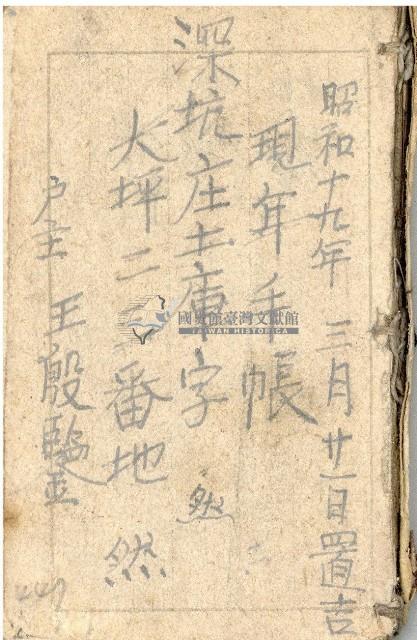 昭和十九年 三月廿一日置吉
現年手帳
深坑庄土庫字 然
大坪二番地 然
戶主 王殷
國史館臺灣文獻館
TAIWAN HISTORICA